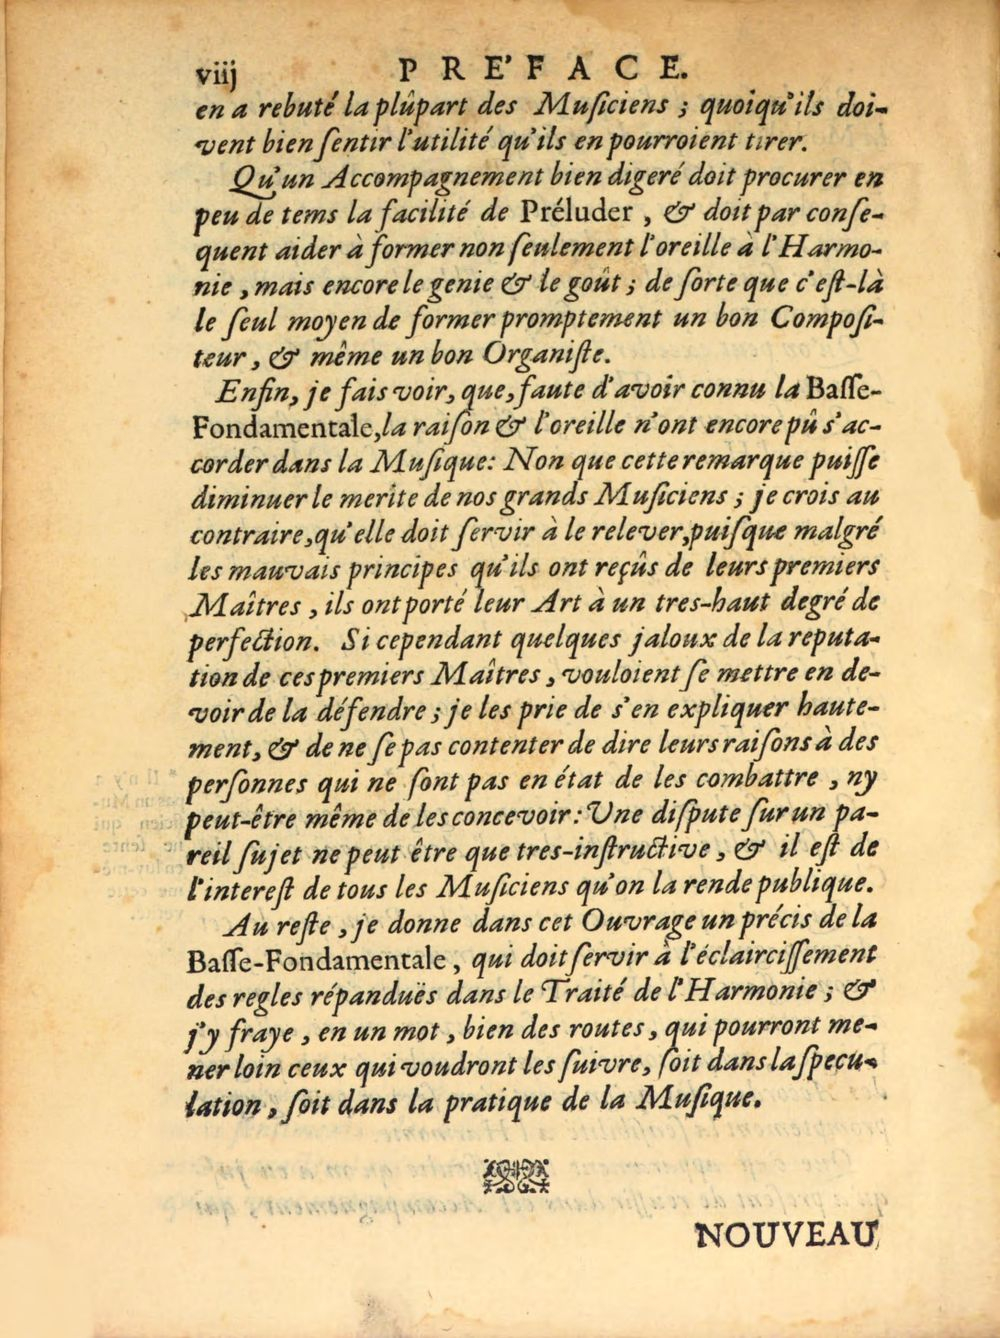 viij PRE'FACE.
en a rebuté la plûpart des Musiciens ; quoiqu'ils doi-
vent bien sentir l'utilité qu'ils en pourroient tirer.
Qu'un Accompagnement bien digeré doit procurer en
peu de tems la facilité de Préluder , & doit par conse-
quent aider à former non seulement l'oreille à l'Harmo-
nie , mais encore le genie & le goût ; de sorte que c'est-là
le seul moyen de former promptement un bon Composi-
teur , & même un bon Organiste.
Enfin, je fais voir, que, faute d'avoir connu la Basse-
Fondamentale, la raison & l'oreille n'ont encore pû s'ac-
corder dans la Musique: Non que cette remarque puisse
diminuer le merite de nos grands Musiciens ; je crois au
contraire, qu'elle doit servir à le relever, puisque malgré
les mauvais principes qu'ils ont reçûs de leurs premiers
Maîtres , ils ont porté leur Art à un tres-haut degré de
perfection. Si cependant quelques jaloux de la reputa-
tion de ces premiers Maîtres , vouloient se mettre en de-
voir de la défendre ; je les prie de s'en expliquer haute-
ment, & de ne se pas contenter de dire leurs raisons à des
personnes qui ne sont pas en état de les combattre , ny
peut-être même de les concevoir : Une dispute sur un pa-
reil sujet ne peut être que tres-instructive , & il est de
l'interest de tous les Musiciens qu'on la rende publique.
Au reste , je donne dans cet Ouvrage un précis de la
Basse-Fondamentale , qui doit servir à l'éclaircissement
des regles répanduës dans le Traité de l'Harmonie ; &
j'y fraye , en un mot , bien des routes , qui pourront me-
ner loin ceux qui voudront les suivre, soit dans la specu-
lation , soit dans la pratique de la Musique.
NOUVEAU